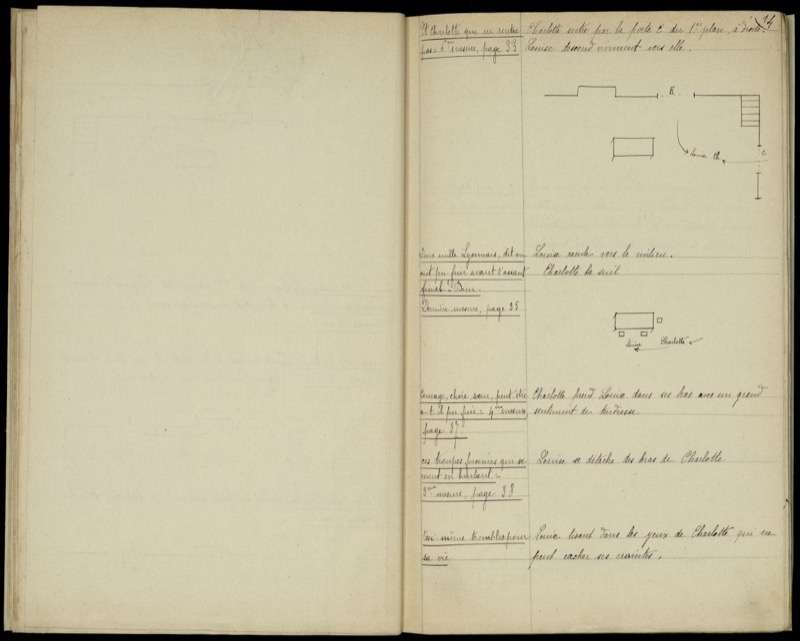 14
Et Charlotte qui ne rentre
pas = 4me mesure, page 33
Charlotte entre par la porte C du 1er plan, à droite.
Louise descend vivement vers elle.
B.
Louise Ch.
C
mille Lyonnais, dit on
ont pu fuir avant l'assaut
final.
Dernière mesure, page 35
Louise recule vers le milieu.
Charlotte la suit
Louise Charlotte
Courage, chère sœur, peut être
a-t-il pu fuir = 4me mesure
page 37
Charlotte prend Louise dans ses bras avec un grand
sentiment de tendresse
ces troupes qui se
ruent en hurlant =
3me mesure, page 38
Louise se détache des bras de Charlotte
même trembles pour
sa vie
Louise lisant dans les yeux de Charlotte qui ne
peut cacher ses craintes.